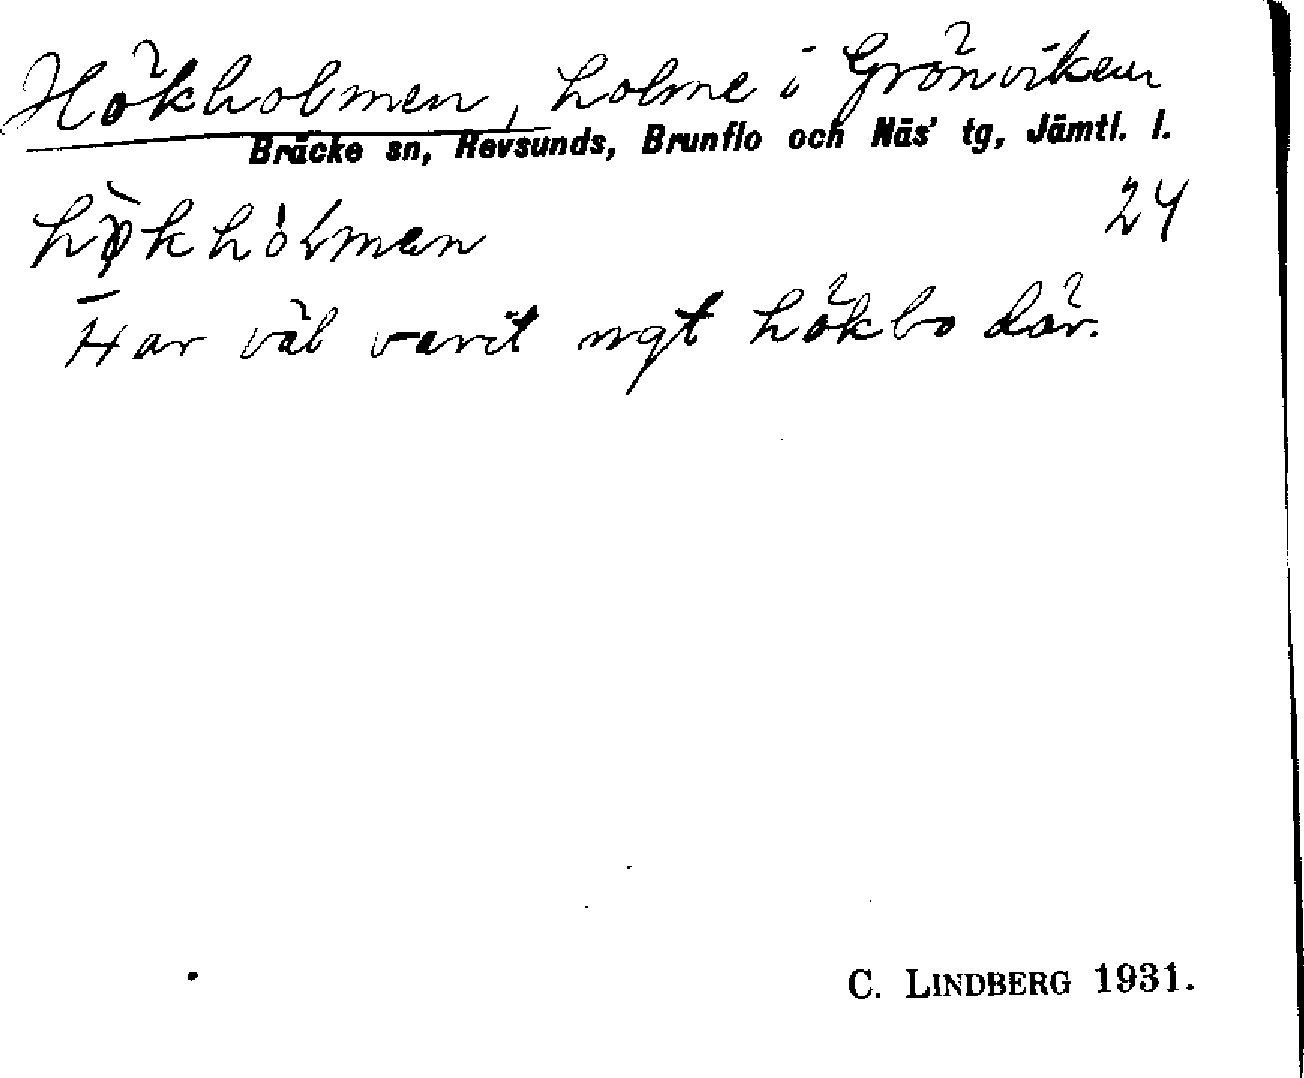 Hökholmen, holme i Grönviken
Bräcke sn, Revsunds, Brunflo och Näs' tg, Jämtl. l.
24
hø̀khòlmen
Har väl varit ngt hökbo där.
C. LINDBERG 1931.